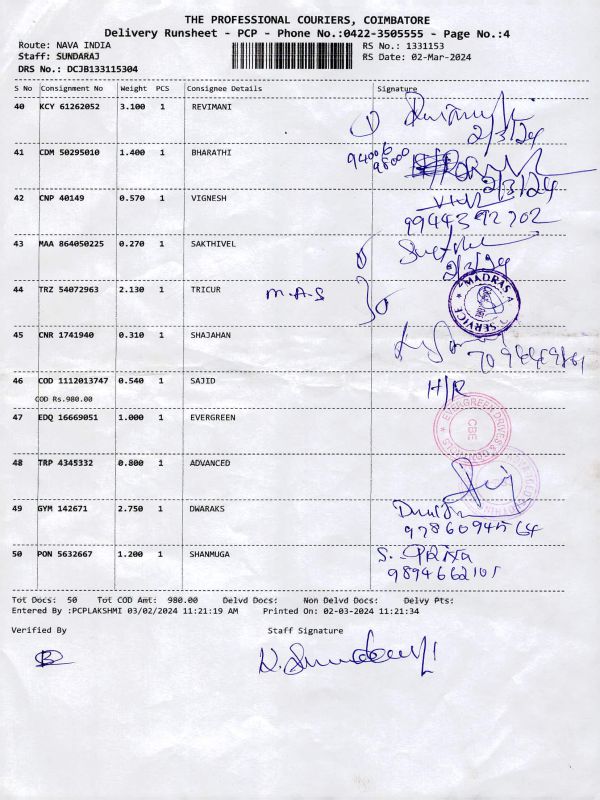 THE PROFESSIONAL COURIERS, COIMBATORE
Delivery Runsheet - PCP - Phone No.:0422-3505555 - Page No.:4
Route: NAVA INDIA RS No.: 1331153
Staff: SUNDARAJ RS Date: 02-Mar-2024
DRS No.: DCJB133115304
S No Consignment No Weight PCS Consignee Details Signature
40 KCY 61262052 3.100 1 REVIMANI
2/3/24
41 CDM 50295010 1.400 1 BHARATHI
2/3/24
42 CNP 40149 0.570 1 VIGNESH
9944392702
43 MAA 864050225 0.270 1 SAKTHIVEL
2/3/24
44 TRZ 54072963 2.130 1 TRICUR M.A.S MADRAS SERVICE
45 CNR 1741940 0.310 1 SHAJAHAN
46 COD 1112013747 0.540 1 SAJID H/R
COD Rs.980.00
47 EDQ 16669051 1.000 1 EVERGREEN CBE
48 TRP 4345332 0.800 1 ADVANCED
49 GYM 142671 2.750 1 DWARAKS
9786094564
50 PON 5632667 1.200 1 SHANMUGA S. PRIYA
9894662101
Tot Docs: 50 Tot COD Amt: 980.00 Delvd Docs: Non Delvd Docs: Delvy Pts:
Entered By :PCPLAKSHMI 03/02/2024 11:21:19 AM Printed On: 02-03-2024 11:21:34
Verified By Staff Signature